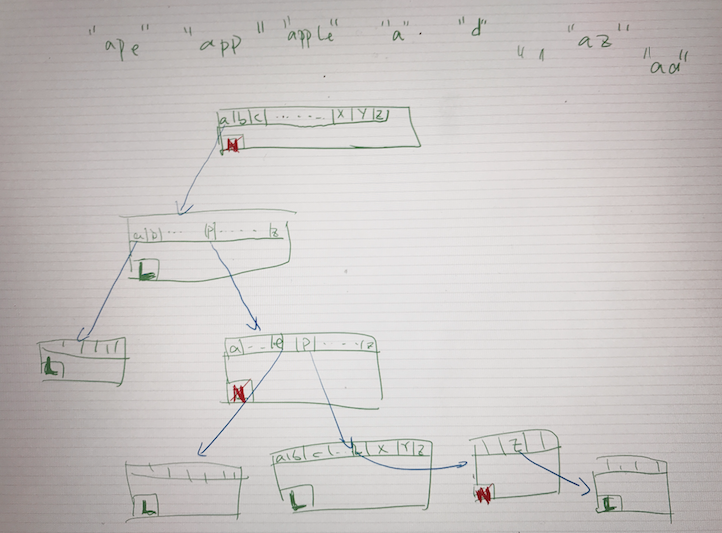 "ape" "app" "apple" "a". "d" "az" "aa"
a|b|c|.......|x|y|z|
N
a|b|...|p|......|z
L
L
a|...|e|p|....|z
N
a|b|c|...L|x|y|z
z
L
L
N
L